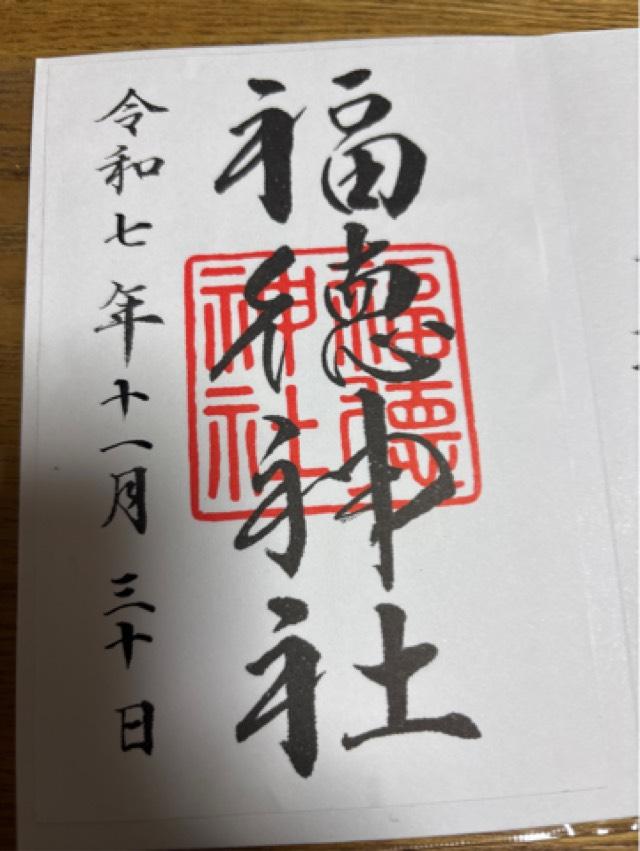 福徳神社
福徳
神社
令和七年十一月三十日